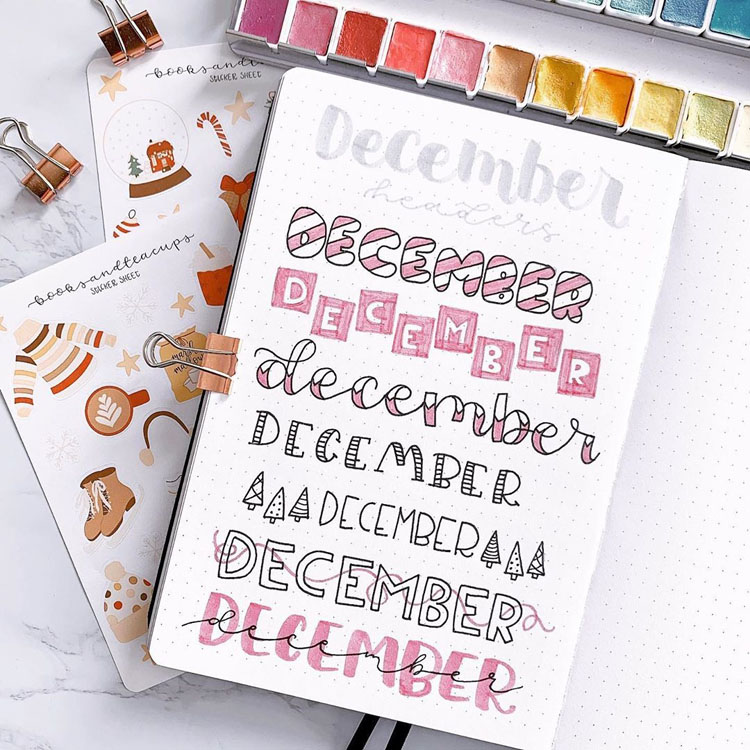 booksandteacups
STICKER SHEET
booksandteacups
STICKER SHEET
December
headers
DECEMBER
DECEMBER
december
DECEMBER
DECEMBER
DECEMBER
DECEMBER
december